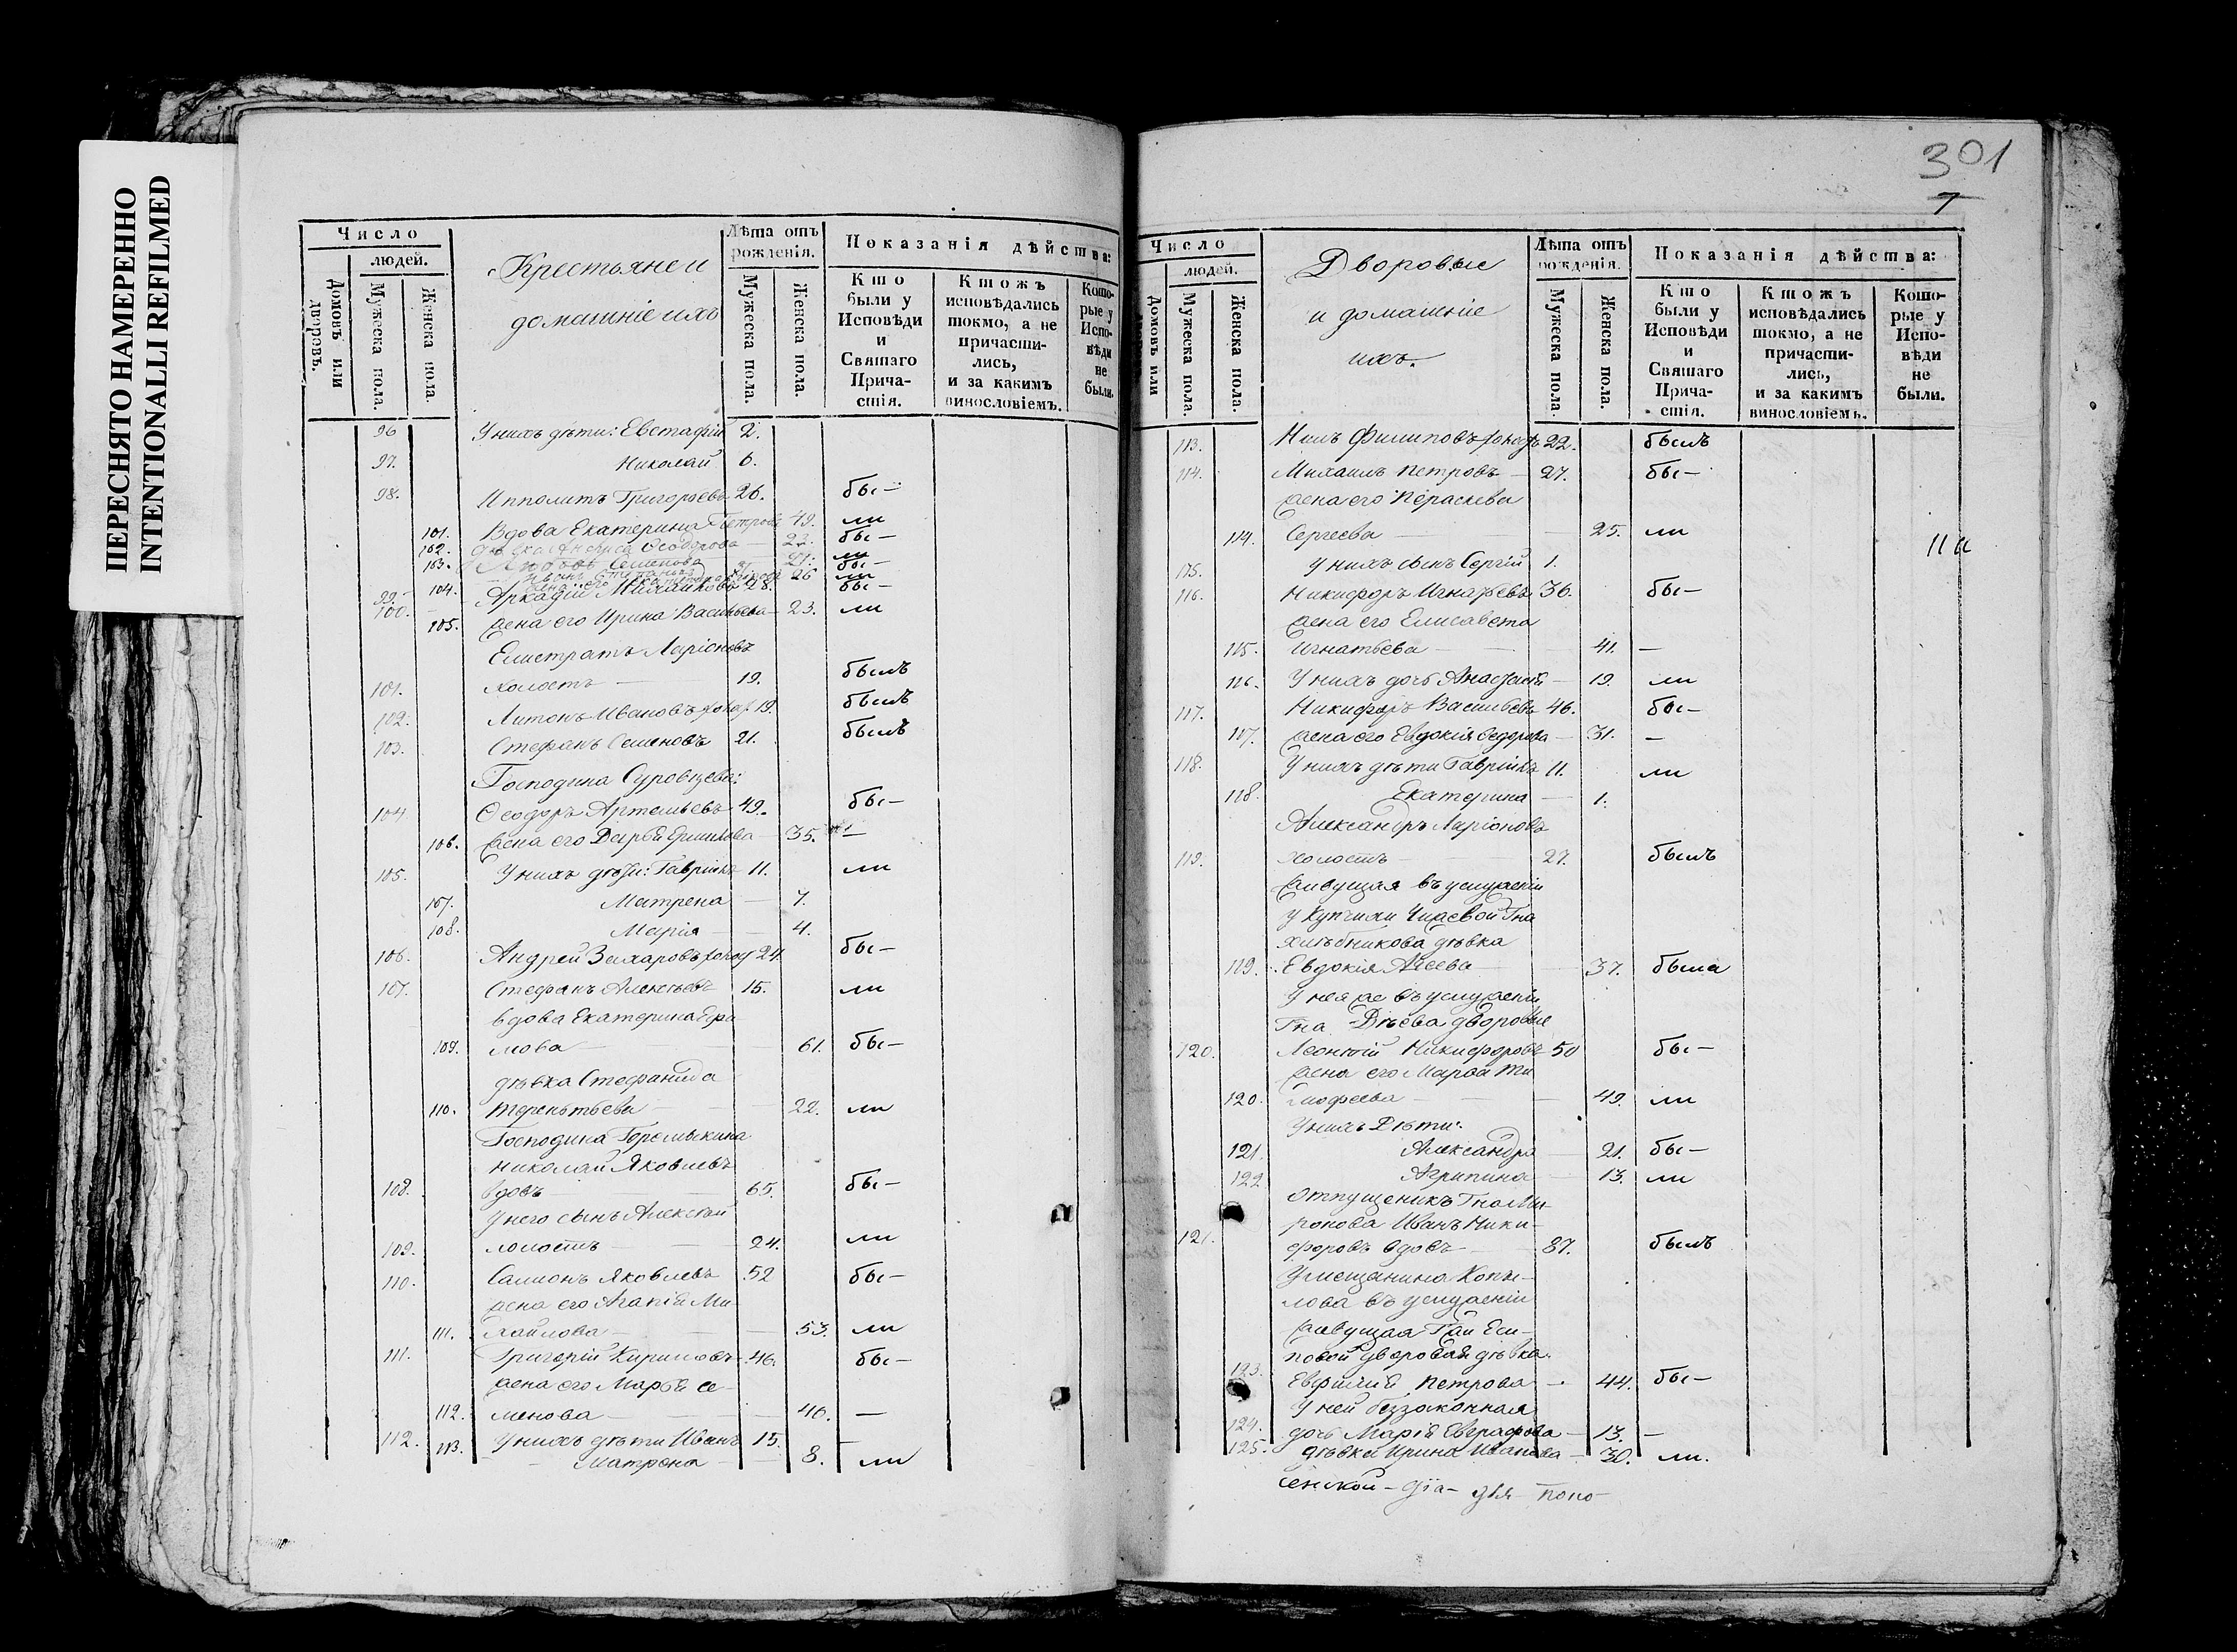 ПЕРЕСНЯТО НАМЕРЕННО
INTENTIONALLI REFILMED
Число
людей.
Домовъ или дворовъ.
Мужеска пола.
Женска пола.
Крестьяне и
домашніе ихъ
Лѣта отъ рожденія.
Мужеска пола.
Женска пола.
Показанія дѣйства:
Кто были у Исповѣди и Святаго Прича-стія.
Ктожъ исповѣдались токмо, а не причасти-лись, и за какимъ винословіемъ.
Кото-рые у Испо-вѣди не были.
96 У нихъ дѣти: Евстафій 2.
97. Николай 6.
98. Ипполитъ Григорьевъ 26. бы-
101. Вдова Екатерина Петрова 49. ли
102. дѣвка Анфиса Ѳеодорова — 23. бы-
103. Любовь Семенова 27. ли
104. 26 ли
99. Аркадій Михайловъ 28. бы-
100. —
105. жена его Ирина Васильева — 23. ли
Елистратъ Ларіоновъ
101. холостъ — 19. былъ
102. Антонъ Ивановъ холос. 19. былъ
103. Стефанъ Семеновъ 21. былъ
Господина Суровцева:
104 Ѳеодоръ Артемьевъ 49. бы-
106. жена его Дарья Ермилова — 35. —
105. У нихъ дѣти: Гавріилъ 11. ли
107. Матрена — 7.
108. Марія — 4.
106. Андрей Захаровъ холос 24. бы-
107. Стефанъ Алексѣевъ 15. ли
вдова Екатерина Ефи
109. мова — 61. бы-
дѣвка Стефанида
110. Терентьева — 22. ли
Господина Горемыкина
Николай Яковлевъ
108. вдовъ — 65. бы-
У него сынъ Алексѣй
109. холостъ — 24. ли
110. Самсонъ Яковлевъ 52 бы-
жена его Агапія Ми
111. хайлова — 53. ли
111. Григорій Кириловъ 46. бы-
жена его Марья Се-
112. менова — 40. —
112. У нихъ дѣти Иванъ 15. —
113. Матрона — 8. ли
301
7
Число
людей.
Домовъ или
Мужеска пола.
Женска пола.
Дворовые
и домашніе
ихъ.
Лѣта отъ рожденія.
Мужеска пола.
Женска пола.
Показанія дѣйства:
Кто были у Исповѣди и Святаго Прича-стія.
Ктожъ исповѣдались токмо, а не причасти-лись, и за какимъ винословіемъ.
Кото-рые у Испо-вѣди не были.
113. Нилъ Филиповъ холос 22. былъ
114. Михаилъ Петровъ — 27. бы-
жена его Параскева
114. Сергеева — 25. ли
115. У нихъ сынъ Сергій 1.
116. Никифоръ Игнатьевъ 36. бы-
жена его Елисавета
115. Игнатьева — 41. —
116. У нихъ дочь Анастасія — 19. ли
117. Никифоръ Васильевъ 46. бы-
107. жена его Евдокія Ѳедорова — 31. —
118. У нихъ дѣти Гавріилъ 11. ли
118. Екатерина — 1.
Александръ Ларіоновъ
119. холостъ — 27. былъ
живущая въ услуженіи
у Купчихи Чижевой Гна
Хлѣбникова дѣвка
119. Евдокія Агеева — 37. была
У нея же въ услуженіи
Гна Дѣева дворовые
120. Леонтій Никифоровъ 50 бы-
жена его Марѳа Ти
120. мофеева — 49. ли
У нихъ Дѣти:
121. Александра — 21. бы-
122 Агрипина — 13. ли
Отпущеникъ Гна Ми-
ронова Иванъ Ники-
121. форовъ вдовъ — 87. былъ
У мещанина Копы-
лова въ услуженіи
живущая Гжи Еси-
повой дворовая дѣвка
123. Евфимія Петрова — 44. бы-
У ней беззаконная
124. дочь Марія Евграфова — 13. —
125. дѣвка Ирина Иванова — 30. ли.